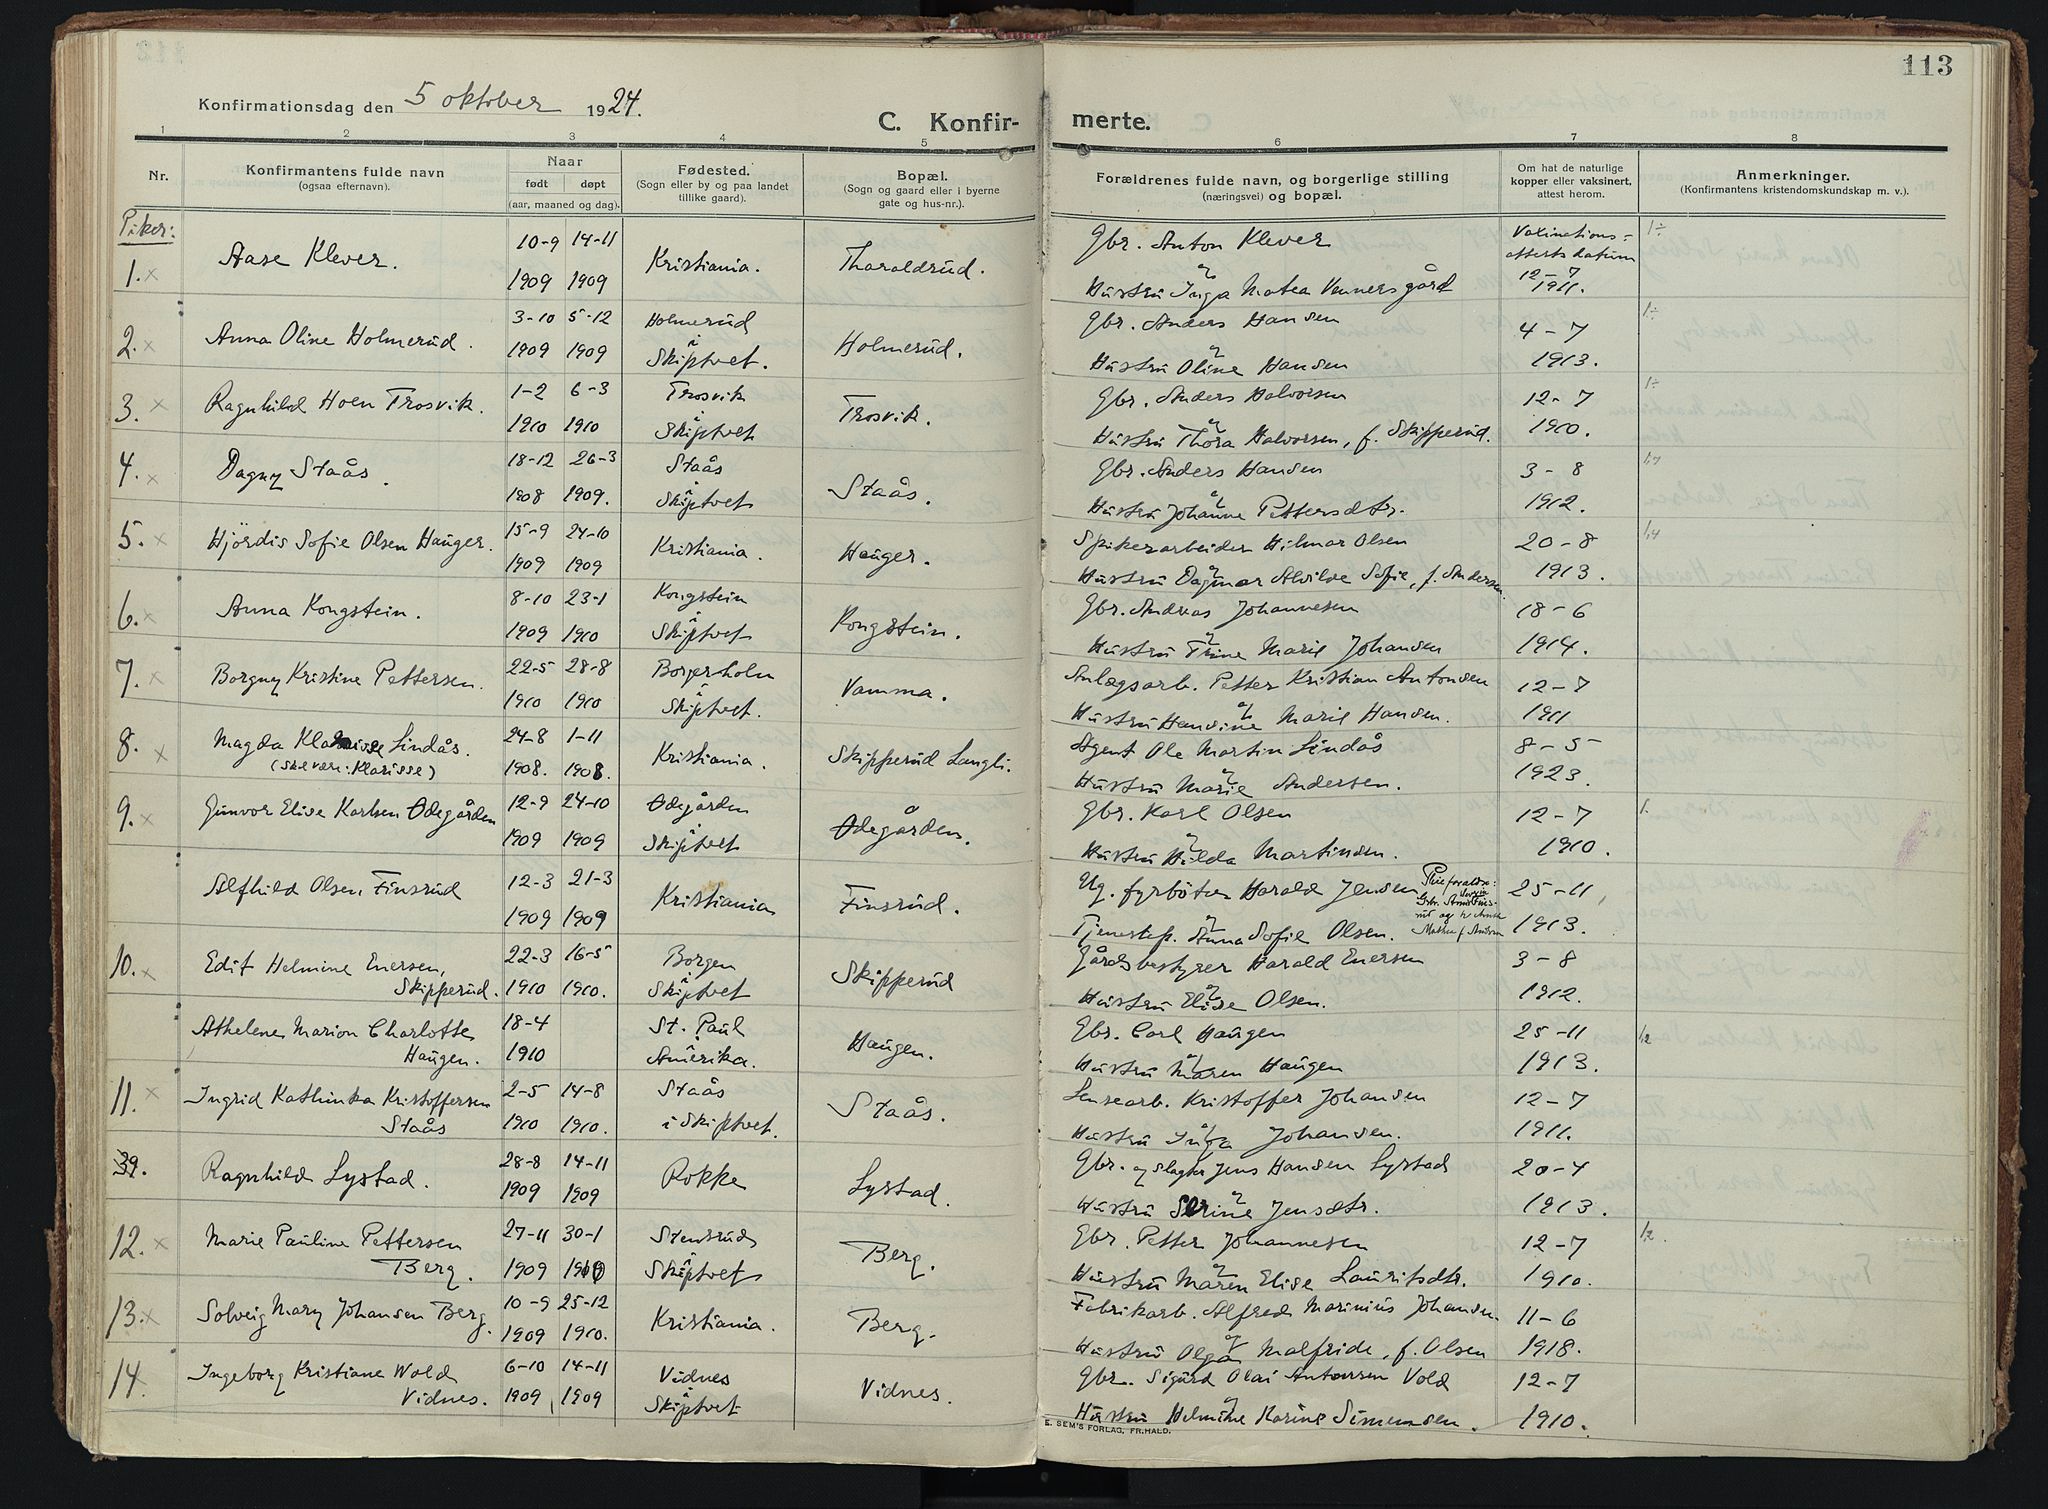 113
Konfirmationsdag den 5 oktober 1924.
C. Konfir- merte.
1 2 3 4 5 6 7 8
Nr.
Konfirmantens fulde navn
(ogsaa efternavn).
Naar
født døpt
(aar, maaned og dag).
Fødested.
(Sogn eller by og paa landet
tillike gaard).
Bopæl.
(Sogn og gaard eller i byerne
gate og hus-nr.).
Forældrenes fulde navn, og borgerlige stilling
(næringsvei) og bopæl.
Om hat de naturlige
kopper eller vaksinert,
attest herom.
Anmerkninger.
(Konfirmantens kristendomskundskap m. v.).
Piker:
1. x Aase Klever. 10-9 14-11 Kristiania. Tharaldrud. Gbr. Anton Klever Vaxinations-
1909 1909 & attests datum
Hustru Inga Matea Unnersgård 12-7 1911.
2. x Anna Oline Holmerud. 3-10 5-12 Holmerud Holmerud. Gbr. Anders Hansen 4-7
1909 1909 i Skiptvet. & Hustru Oline Hansen 1913.
3. x Ragnhild Hoen Trosvik. 1-2 6-3 Trosvik Trosvik. Gbr. Anders Halvorsen 12-7
1910 1910 i Skiptvet & Hustru Thora Halvorsen, f. Skipperud. 1910.
4. x Dagny Staås. 18-12 26-3 Staås Staås. Gbr. Anders Hansen 3-8
1908 1909. i Skiptvet & Hustru Johanne Pettersdtr. 1912.
5. x Hjördis Sofie Olsen Hauger. 15-9 24-10 Kristiania. Hauger. Spikerarbeider Hilmar Olsen 20-8
1909 1909 & Hustru Dagmar Alvilde Sofie, f. Andersen. 1913.
6. x Anna Kongstein. 8-10 23-1 Kongstein Kongstein. Gbr. Andreas Johannesen 18-6
1909 1910 i Skiptvet & Hustru Trine Marie Johansen 1914.
7. x Borgny Kristine Pettersen. 22-5 28-8 Borgerholm Vamma. Anlægsarb. Petter Kristian Antonsen 12-7
1910 1910 i Skiptvet. & Hustru Hansine Marie Hansen. 1911
8. x Magda Klarisse Lindås. 24-8 1-11 Kristiania. Skipperud Langli. Agent Ole Martin Lindås 8-5
(skal være: Klarisse) 1908. 1908. & Hustru Marie Andersen. 1923.
9. x Gunvor Elise Karlsen Ødegården 12-9 24-10 Ødegården Ødegården. Gbr. Karl Olsen 12-7
1909 1909 i Skiptvet & Hustru Hilda Martinsen. 1910.
Alfhild Olsen Finsrud 12-3 21-3 Kristiania Finsrud. Ug. fyrbøter Harald Jensen 25-11
1909 1909 & Tjenestep. Anna Sofie Olsen. 1913.
10. x Edit Helmine Enersen, 22-3 16-5 Borgen Skipperud Gårdsbestyrer Harald Enersen 3-8
Skipperud. 1910 1910. i Skiptvet & Hustru Elise Olsen. 1912.
Athelene Marion Charlotte 18-4 St. Paul Haugen. Gbr. Carl Haugen 25-11
Haugen. 1910 i Amerika. & Hustru Maren Haugen 1913.
11. x Ingrid Kathinka Kristoffersen 2-5 14-8 Staås Staås. Lensearb. Kristoffer Johansen 12-7
Staås 1910 1910. i Skiptvet. & Hustru Inga Johansen. 1911.
39. Ragnhild Lystad. 28-8 14-11 Rokke Lystad. Gbr. og slagter Jens Hansen Lystad 20-4
1909 1909 & Hustru Serine Jensdtr. 1913.
12. x Marie Pauline Pettersen 27-11 30-1 Stensrud Berg. Gbr. Petter Johannesen 12-7
Berg. 1909 1910 i Skiptvet & Hustru Maren Elise Lauritsdtr. 1910.
13. x Solveig Mary Johansen Berg. 10-9 25-12 Kristiania. Berg. Fabrikarb. Alfred Marinius Johansen. 11-6
1909 1910. & Hustru Olga Malfride, f. Olsen 1918.
14. Ingeborg Kristiane Wold 6-10 14-11 Vidnes Vidnes. Gbr. Sigurd Olai Antonsen Vold 12-7
Vidnes. 1909 1909 i Skiptvet & Hustru Helmine Karine Simensen. 1910.
E. SEM'S FORLAG, FR.HALD.